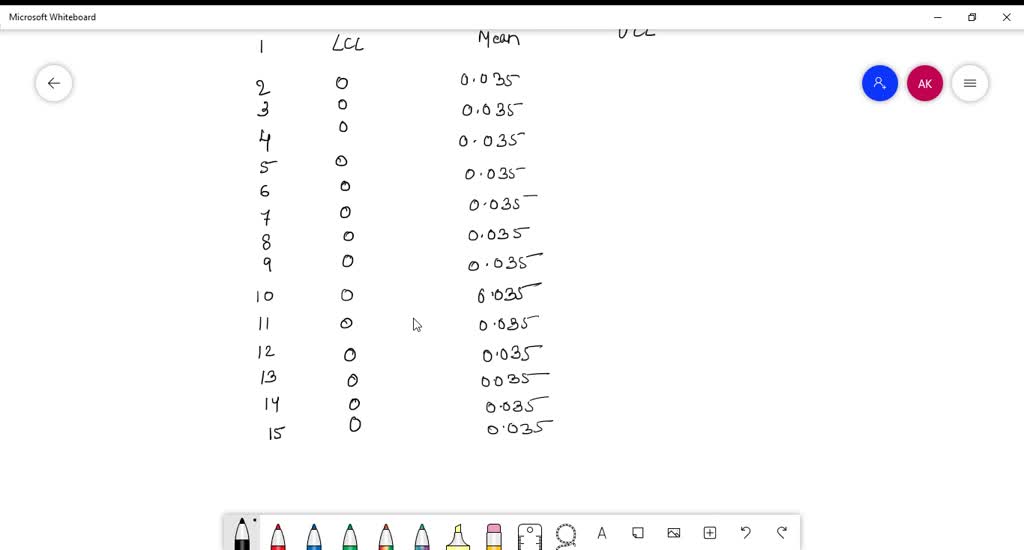 Microsoft Whiteboard
1 LCL Mean UCL
AK
2 0 0.035
3 0 0.035
4 0 0.035
5 0 0.035
6 0 0.035
7 0 0.035
8 0 0.035
9 0 0.035
10 0 0.035
11 0 0.035
12 0 0.035
13 0 0035
14 0 0.035
15 0 0.035
A